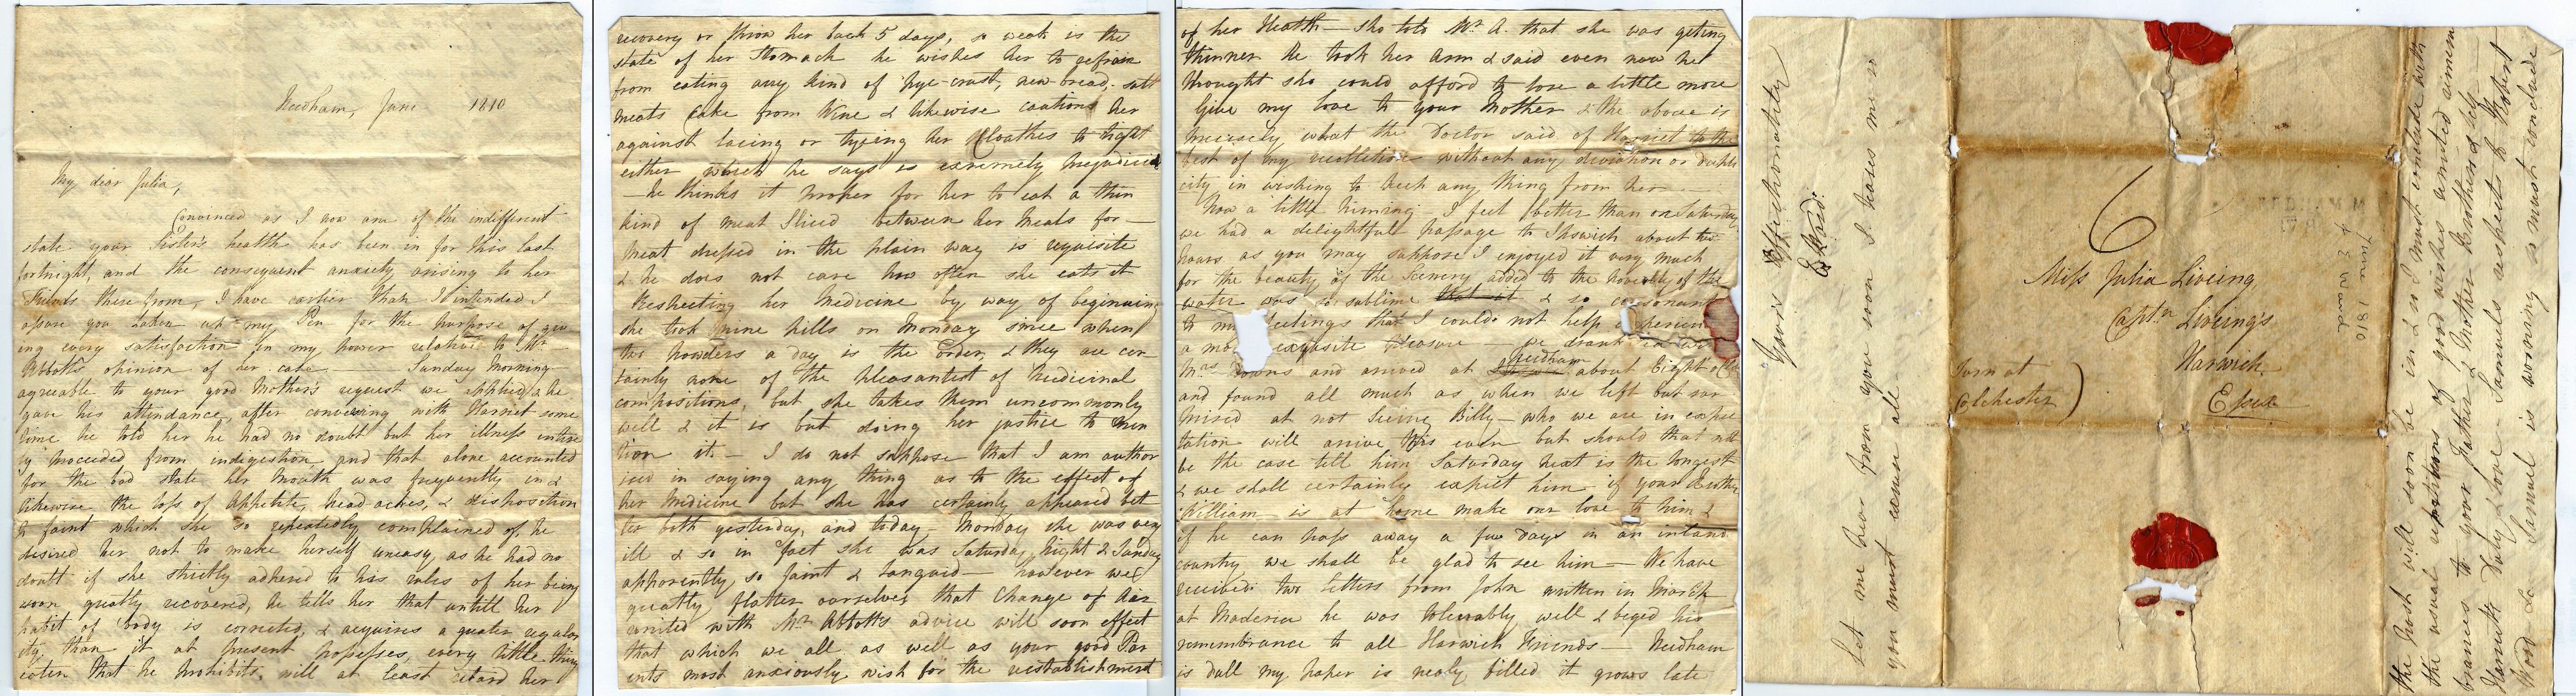 Needham, June 1810
My dear Julia,
Convinced as I now am of the indifferent
state your Sister's health has been in for this last
fortnight, and the consequent anxiety arising to her
Friends there from, I have earlier than I intended I
assure you taken up my Pen for the purpose of giv
ing every satisfaction in my power relative to Mr
Abbott's opinion of her case — Sunday Morning
agreable to your good Mother's request we applied & he
gave his attendance, after conversing with Harriet some
time he told her he had no doubt but her illness entire
ly proceeded from indigestion and that alone accounted
for the bad state her Mouth was frequently in &
likewise the loss of Appetite, head aches, & disposition
to faint which she so repeatedly complained of, he
desired her not to make herself uneasy, as he had no
doubt if she strictly adhered to his rules of her being
soon greatly recovered, he tells her that untill her
habit of body is corrected, & acquires a greater regular
ity, than it at present possesses, every little thing
eaten that he prohibits, will at least retard her
recovery or throw her back 5 days, so weak is the
state of her Stomach he wishes her to refrain
from eating any kind of pye-crust, new bread, salt
meats Cake from Wine & likewise cautions her
against lacing or tyeing her Cloathes to tight
either which he says is extremely prejudicial
— he thinks it proper for her to eat a thin
kind of meat Sliced between her Meals for —
meat dressed in the plain way is requisite
& he does not care how often she eats it
Respecting her Medicine by way of beginning
she took nine pills on Monday since when
two powders a day is the order, & they are cer
tainly none of the pleasantest of Medicinal
compositions, but she takes them uncommonly
well & it is but doing her justice to men
tion it. — I do not suppose that I am author
ised in saying any thing as to the effect of
her Medicine but she has certainly appeared bet
ter both yesterday, and today — Monday she was very
ill & so in fact she was Saturday Night & Sunday
apparently so faint & languid — however we
greatly flatter ourselves that Change of Air
united with Mr Abbott's advice will soon effect
that which we all as well as your good Par
ents most anxiously wish for the reestablishment
of her Health — she told Mr A. that she was geting
thinner he took her Arm & said even now he
thought she could afford to lose a little more
Give my love to your Mother & the above is
precisely what the Doctor said of Harriet to the
best of my recollection without any deviation or dupli
city in wishing to keep any thing from her —
Now a little hinning I feel better than on Saturday
we had a delightfull passage to Ipswich about two
hours as you may suppose I enjoyed it very much
for the beauty of the Scenery added to the novelty of the
water was so sublime that it & so consonant
to my feelings that I could not help experienc
a mo exquisite pleasure — we drank tea
Mrs and arrived at Needham about Eight
and found all much as when we left but sur
prised at not Seeing Billy — who we are in expec
tation will arrive this even but should that not
be the case tell him Saturday next is the longest
& we shall certainly expect him if your Brother
William is at home make our love to him &
if he can pass away a few days in an inland
country we shall be glad to see him — We have
received two letters from John written in March
at Maderia he was tolerably well & beged his
remembrance to all Harwich Friends — Needham
is dull my paper is nearly filled it grows late
the post will soon be in & so I must conclude with
the usual expressions of good wishes united remem
brances to your Father & Mother Brothers & self —
Hannahs Duty & Love — Samuels respects to Robert
Wood & Samuel is worning so must conclude
Yours Affectionately
E Ward.
Let me hear from you soon I leave me so
you must excuse all —
6
Miss Julia Liveing,
Captn Liveing's
Harwich
Essex
Turn at
Colchester)
June 1810
E Ward